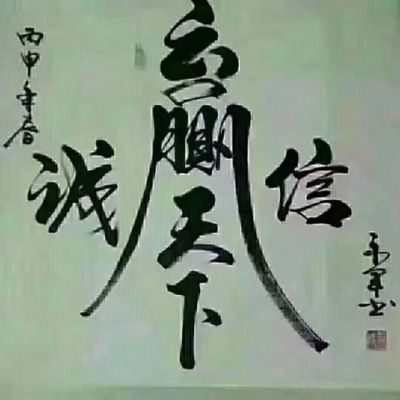 丙申年春
诚信
赢天下
军书